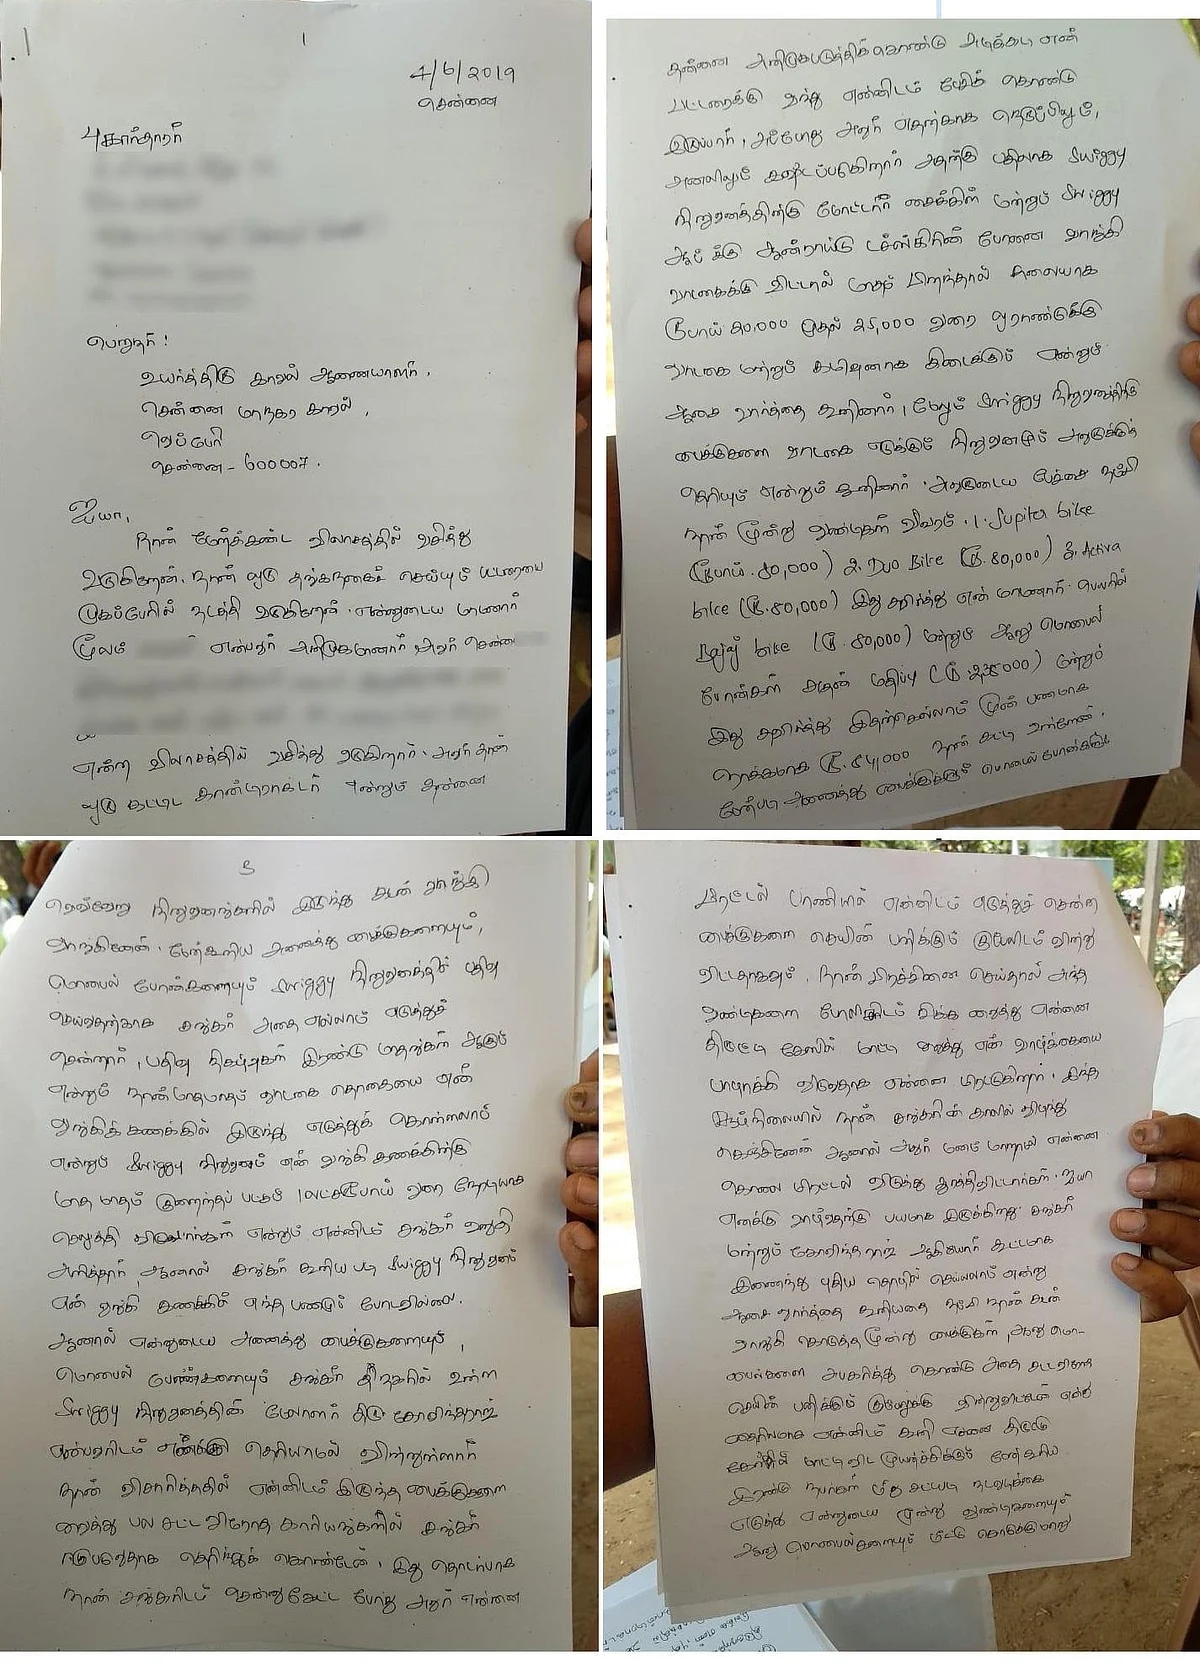 1
4/6/2019
சென்னை
புகார்தாரர்
பெறுநர்:
உயர்த்திரு காவல் ஆணையாளர்.
சென்னை மாநகர காவல்,
வெப்பேரி
சென்னை - 600007.
ஐயா,
நான் மேற்கண்ட விலாசத்தில் வசித்து
வருகிறேன். நான் ஒரு தங்கநகைச் செய்யும் பட்டறையை
முகப்பேரில் நடத்தி வருகிறேன். என்னுடைய மாமனார்
மூலம் என்பவர் அறிமுகமானார் அவர்
என்ற விலாசத்தில் வசித்து வருகிறார். அவர் தான்
ஒரு கட்டிட காண்டிராக்டர் என்றும் தன்னை
தன்னை அறிமுகபடுத்திக்கொண்டு அடிக்கடி என்
பட்டறைக்கு வந்து என்னிடம் பேசிக் கொண்டு
இருப்பார், அப்போது அவர் எதற்காக நெருப்பிலும்,
அனலிலும் கஷ்டப்படுகிறார் அதற்கு பதிலாக Swiggy
நிறுவனத்திற்கு மோட்டார் சைக்கிள் மற்றும் Swiggy
ஆப் க்கு ஆண்ராய்டு டச்ஸ்கிரின் போனை வாங்கி
வாடகைக்கு விட்டால் மாதம் பிறந்தால் தலையாக
ரூபாய் 20,000 முதல் 25,000 வரை ஓராண்டுக்கு
வாடகை மற்றும் கமிஷனாக கிடைக்கும் என்றும்
ஆசை வார்த்தை கூறினார், மேலும் Swiggy நிறுவனத்திற்கு
பைக்குகளை வாடகை எடுக்கும் நிறுவனமும் அவருக்குத்
தெரியும் என்றும் கூறினார். அவருடைய பேச்சை நம்பி
நான் மூன்று வண்டிகள் விவரம். 1. Jupiter bike
(ரூபாய். 80,000) 2. Duo Bike (ரூ. 80,000) 3. Activa
bike (ரூ. 80,000) இது குறித்து என் மாமனார் பெயரில்
Bajaj bike (ரூ. 80,000) மற்றும் ஆறு மொபைல்
போன்கள் அதன் மதிப்பு மற்றும்
இது குறித்து இதற்கெல்லாம் முன் பணமாக
ரொக்கமாக ரூ. 54,000 நான் கட்டி உள்ளேன்.
மேற்படி அனைத்து பைக்குக்களும் மொபைல் போன்களும்
3
வெவ்வேறு நிறுவனங்களில் இருந்து கடன் வாங்கி
வாங்கினேன். மேற்கூறிய அனைத்து பைக்குகளையும்,
மொபைல் போன்களையும் Swiggy நிறுவனத்தில் பதிவு
செய்வதற்காக சங்கர் அதை எல்லாம் எடுத்துச்
சென்றார், பதிவு நிகழ்வுகள் இரண்டு மாதங்கள் ஆகும்
என்றும் நான் மாதமாதம் வாடகை தொகையை என்
வங்கிக் கணக்கில் இருந்து எடுத்துக் கொள்ளலாம்
என்றும் Swiggy நிறுவனம் என் வங்கி கணக்கிற்கு
மாத மாதம் குறைந்தப் பட்சம் 1லட்சரூபாய் வரை நேரடியாக
செலுத்தி விடுவார்கள் என்றும் என்னிடம் சங்கர் உறுதி
அளித்தார், ஆனால் சங்கர் கூறிய படி Swiggy நிறுவனம்
என் வங்கி கணக்கில் எந்த பணமும் போடவில்லை.
ஆனால் என்னுடைய அனைத்து பைக்குகளையும்,
மொபைல் போண்களையும் சங்கர் தி.நகரில் உள்ள
Swiggy நிறுவனத்தின் மேலாளர் திரு கோவிந்தராஜ்
என்பவரிடம் எனக்கு தெரியாமல் விற்றுள்ளார்
நான் விசாரித்ததில் என்னிடம் இருந்த பைக்குகளை
வைத்து பல சட்ட விரோத காரியங்களில் சங்கர்
ஈடுபடுவதாக தெரிந்துக் கொண்டேன். இது தொடர்பாக
நான் சங்கரிடம் சென்று கேட்ட போது அவர் என்னை
மிரட்டல் பாணியில் என்னிடம் எடுத்துச் சென்ற
பைக்குகளை செயின் பறிக்கும் குரூப்பிடம் விற்று
விட்டதாகவும். நான் பிரச்சினை செய்தால் அந்த
வண்டிகளை போலிஸிடம் சிக்க வைத்து என்னை
திருட்டு கேஸில் மாட்டி வைத்து என் வாழ்க்கையை
பாழாக்கி விடுவதாக என்னை மிரட்டுகிறார். இந்த
சூழ்நிலையில் நான் சங்கரின் காலில் விழுந்து
கெஞ்சினேன் ஆனால் அவர் மனம் மாறாமல் என்னை
கொலை மிரட்டல் விடுத்து துரத்திவிட்டார்கள். ஐயா
எனக்கு வாழ்வதற்கு பயமாக இருக்கிறது. சங்கர்
மற்றும் கோவிந்தராஜ் ஆகியோர் கூட்டமாக
இணைந்து புதிய தொழில் செய்யலாம் என்று
ஆசை வார்த்தை கூறியதை நம்பி நான் கடன்
வாங்கி கொடுத்த மூன்று பைக்குகள், ஆறு மொ-
பைல்களை அபகரித்து கொண்டு அதை சட்டவிரோத
செயின் பறிக்கும் குரூப்புக்கு விற்றுவிட்டேன் என்று
தைரியமாக என்னிடம் கூறி என்னை திருட்டு
கேஸில் மாட்டி விட முயற்சிக்கும் மேற்கூறிய
இரண்டு நபர்கள் மீது சட்டபடி நடவடிக்கை
எடுத்து என்னுடைய மூன்று வண்டிகளையும்
ஆறு மொபைல்களையும் மீட்டு கொடுக்குமாறு